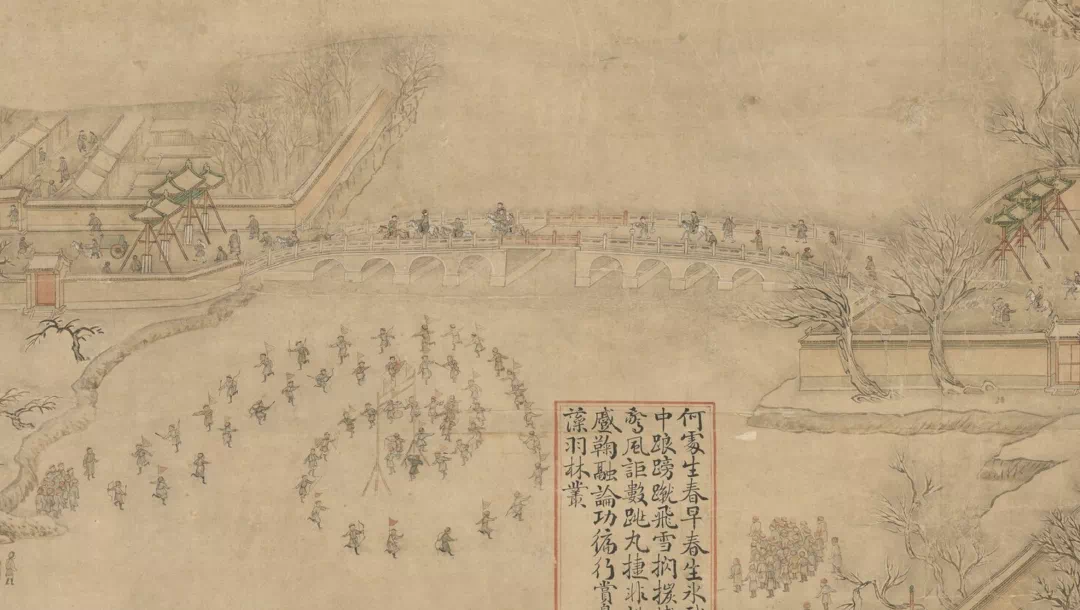 何處生春早春生氷
中踉蹡蹴飛雪
風詎數跳丸捷非
鞠融論功徧行賞
藻羽林叢